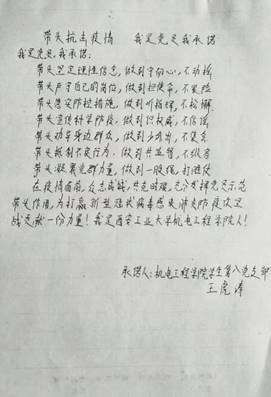 带头抗击疫情 我是党员我承诺
我是党员,我承诺:
带头坚定理性信念,做到守初心,不动摇
带头严守自己的岗位,做到担使命,不冒险
带头落实防控措施,做到听指挥,不松懈
带头宣传科学防疫,做到识权威,不信谣
带头劝导身边群众,做到少外出,不聚会
带头抵制不良行为,做到共监督,不纵容
带头凝聚党群力量,做到一股绳,打胜仗
在疫情面前,众志成城,共克时艰,充分发挥党员示范
带头作用,为打赢新型冠状病毒感染肺炎防疫攻坚
战贡献一份力量!我是西安工业大学机电工程学院人!
承诺人:机电工程学院学生第八党支部
王虎